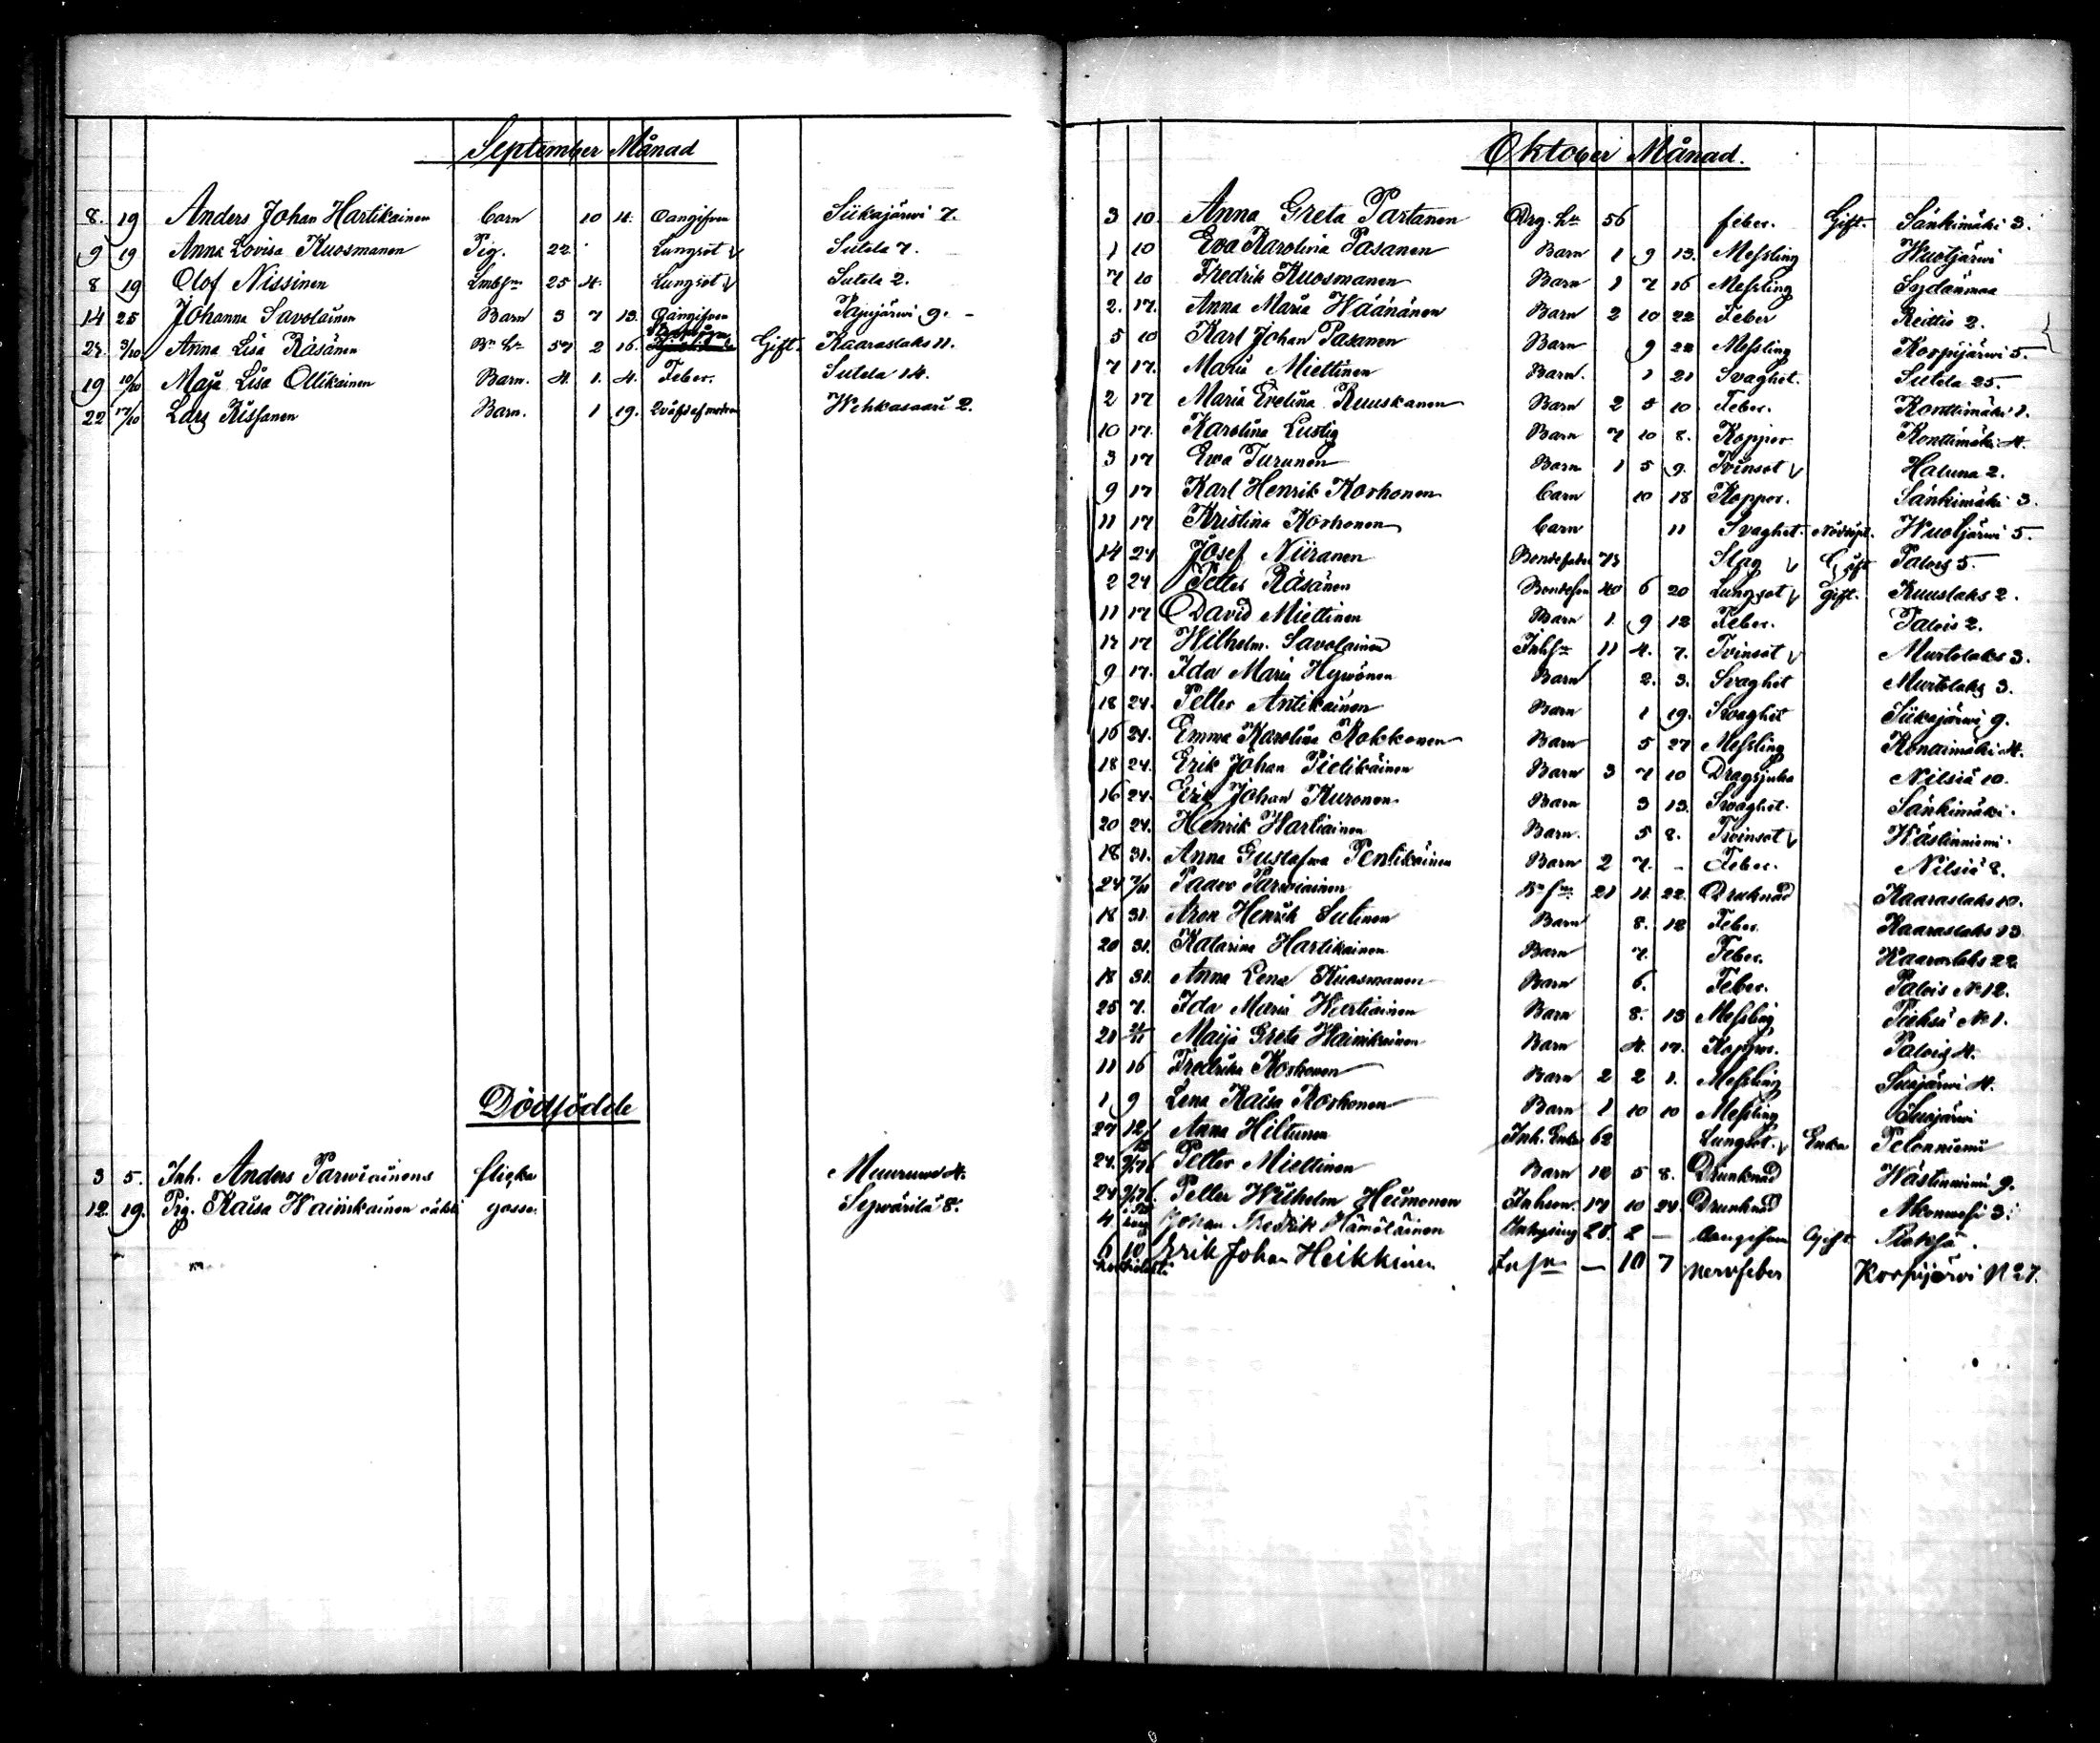 September Månad
8. 19 Anders Johan Hartikainen Barn 10 4. Oangifven Siikajärwi 7.
9 19 Anna Lovisa Kuosmanen Pig. 22 Lungsot Sutela 7.
8 19 Olof Nissinen 25 4. Lungsot Sutela 2.
14 25 Johanna Savolainen Barn 3 7 13. Oangifven Papijärwi 9. -
3/10 Anna Lisa Räsänen 57 2 16. Gift. Kaaraslaks 11.
19 10/10 Maja Lisa Ollikainen Barn. 4. 1. 4. Feber. Sutela 14.
22 17/10 Lars Barn. 1 19. Wehkasaari 2.
Dödfödde
3 5. Inh. Anders Parwiainens flicka Muuruwesi 4.
12. 19. Pig. Kaisa Wainikainen gosse Sywärilä 8.
Oktober Månad.
3 10. Anna Greta Partanen 56 feber. Gift. Sänkimäki 3.
1 10 Eva Karolina Pasanen Barn 1 9 13. Messling Wuotjärwi
7 10 Fredrik Kuosmanen Barn 1 7 16 Messling Sydänmaa
2. 17. Anna Maria Wäänänen Barn 2 10 22 Feber Reittiö 2.
5 10 Karl Johan Pasanen Barn 9 22 Messling Korpijärwi 5.
7 17. Maria Miettinen Barn. 1 21 Svaghet. Sutela 25.
2 17 Maria Evelina Ruuskanen Barn 2 5 10 Feber. Konttimäki 1.
10 17. Karolina Lustig Barn 7 10 8. Koppor Konttimäki 4.
3 17 Ewa Turunen Barn 1 5 9. Tvinsot Haluna 2.
9 17 Karl Henrik Korhonen Barn 10 18 Koppor. Sänkimäki 3.
11 17. Kristina Korhonen Barn 11 Svaghet. Nöddöpt. Wuotjärwi 5.
14 24 Josef Niiranen 73 Slag Gift Palois 5.
2 24 Petter Räsänen Bondeson 40 6 20 Lungsot Gift. Kuuslaks 2.
11 17 David Miettinen Barn 1. 9 12 Feber. Palois 2.
17 Wilhelm. Savolainen 11 4. 7. Tvinsot Murtolaks 3.
9 17. Ida Maria Hyvönen Barn 2. 3. Svaghet Murtolaks 3.
18 24. Petter Antikainen Barn 1 19. Svaghet Siikajärwi 9.
16 24. Emma Karolina Rokkonen Barn 5 27 Messling Konttimäki 4.
18 24. Erik Johan Pielikäinen Barn 3 7 10 Dragsjuka Nilsiä 10.
16 24. Eric Johan Kuronen Barn 3 13. Svaghet. Sänkimäki.
20 24. Henrik Wartiainen Barn. 5 8. Tvinsot Wästinniemi.
18 31. Anna Gustafwa Pentikäinen Barn 2 7. - Feber. Nilsiä 2.
24 Paavo Parwiainen 21 11. 22. Druknad Kaaraslaks 10.
18 31. Aron Henrik Sutinen Barn 8. 12 Feber Kaaraslaks 13
20 31. Katarina Hartikainen Barn 7. Feber. Kaaraslaks 22
18 31. Anna Lena Kuosmanen Barn 6. Feber. Palois No 12.
25 7. Ida Maria Wartiainen Barn 8. 13 Messling Pieksä No 1.
21 Maija Greta Wainikainen Barn 4. 17. Koppor. Palois 4.
11 16 Fredrika Korhonen Barn 2 2 1. Messling Susijärwi 4.
1 9 Lena Kaisa Korhonen Barn 1 10 10 Messling Susijärwi
27 12/ Anna Hiltunen Inh. Enka 62 Lungsot. Enka Pelonniemi
24. Petter Miettinen Barn 12 5 8. Drunknad Wästinniemi 9.
24 Petter Wilhelm Heimonen Inhson. 17 10 24 Drunknad Akonwesi 3.
4. Johan Fredrik Hämäläinen Inhysing 28. 2 — Oangifven Gift
6 10 Erik Johan Heikkinen — 10 7 nervfeber Korpijärvi No 7.